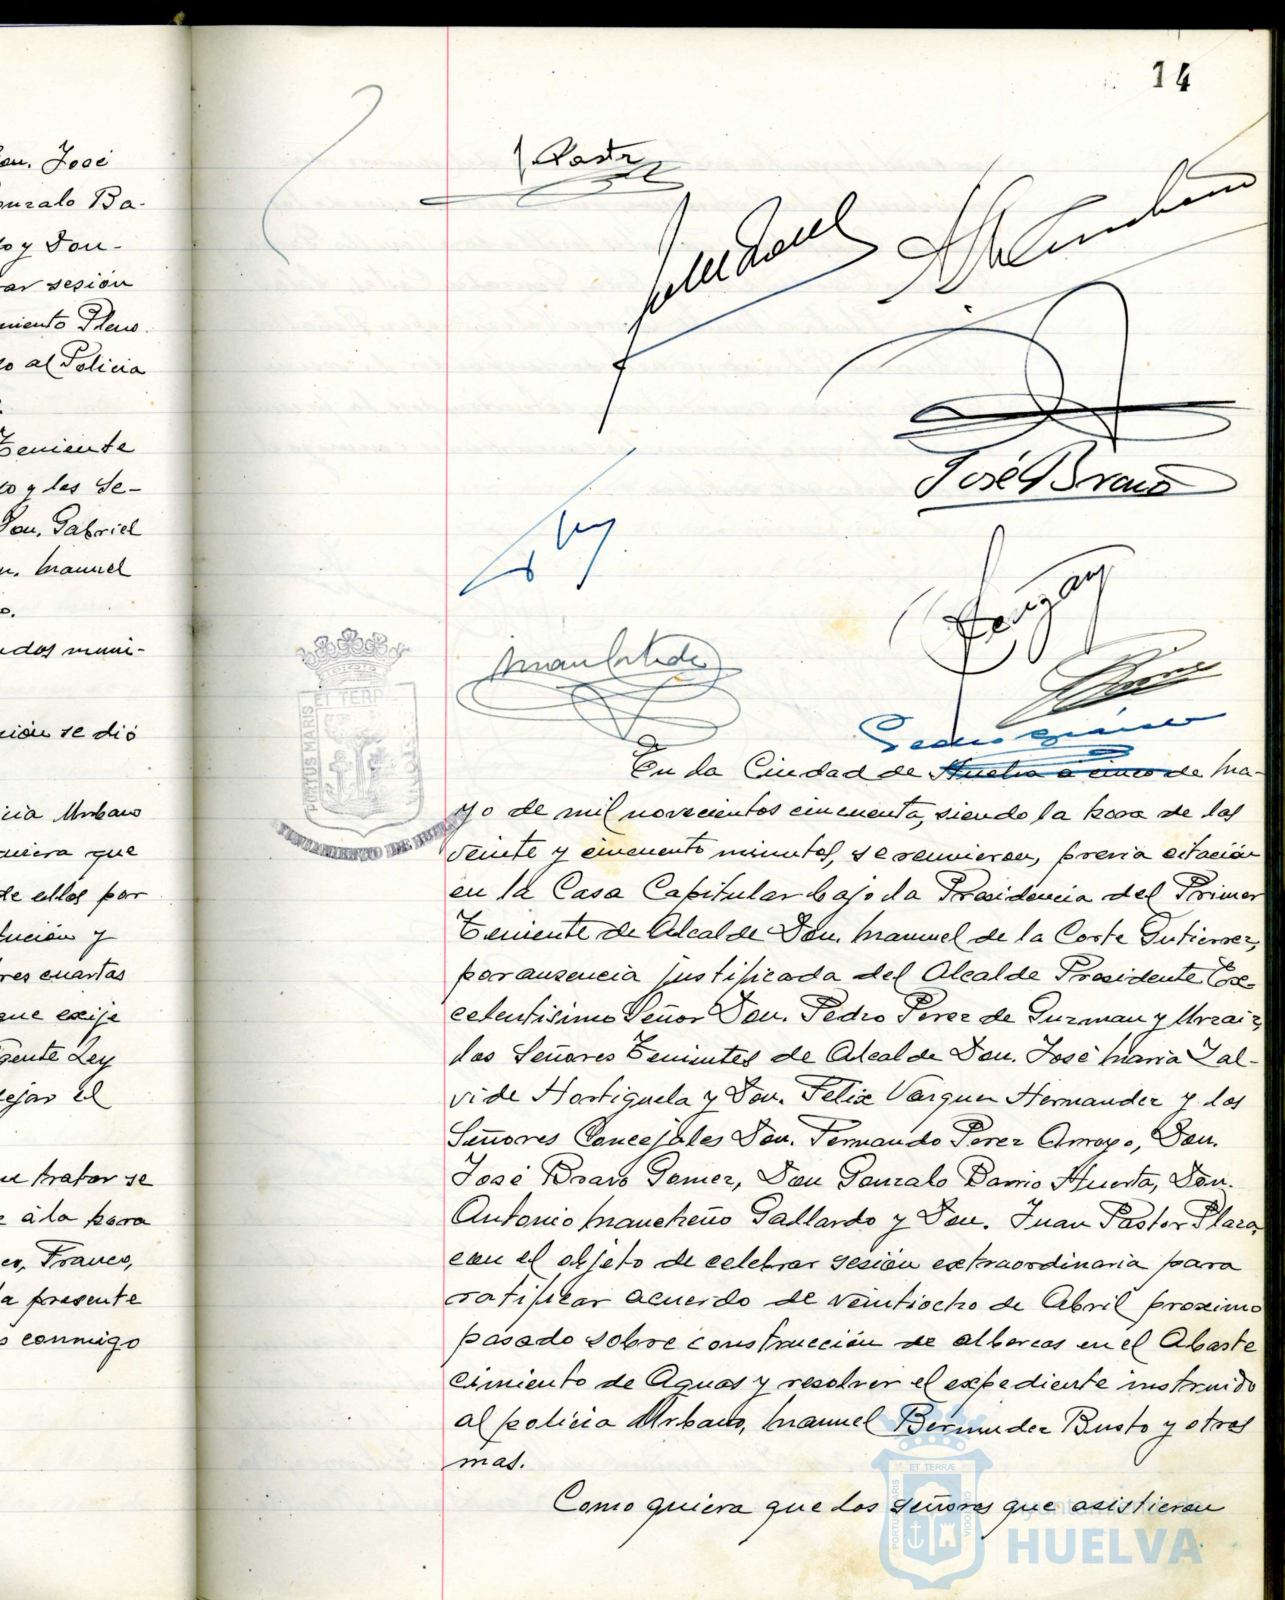 14
on. José
onzalo Ba-
o y Don-
ar sesión
miento Pleno.
o al Policia
Teniente
o y los Se-
Don. Gabriel
n. Manuel
o.
ados muni-
sión se dió
icia Urbano
quiera que
de ellos por
tución y
res cuartas
que exije
gente Ley
ejar el
e tratar se
e á la hora
co, Franco,
a presente
o conmigo
J Pastor
José Bravo
ET TERR
PORTUS MARIS
AYUNTAMIENTO DE HUELVA
En la Ciudad de Huelva a cinco de Ma-
yo de mil novecientos cincuenta, siendo la hora de las
veinte y cincuenta minutos, se reunieron, previa citación
en la Casa Capitular bajo la Presidencia del Primer
Teniente de Alcalde Don. Manuel de la Corte Gutierrez,
por ausencia justificada del Alcalde Presidente Ex-
celentisimo Señor Don. Pedro Perez de Guzman y Urzaiz,
los Señores Tenintes de Alcalde Don. José Maria Zal-
vide Hortiguela y Don. Felix Vazquez Hernandez y los
Señores Concejales Don. Fernando Perez Arroyo, Don.
José Bravo Gomez, Don Gonzalo Barrio Huerta, Don.
Antonio Mancheño Gallardo y Don. Juan Pastor Plaza,
con el objeto de celebrar sesión extraordinaria para
ratificar acuerdo de veintiocho de Abril proximo
pasado sobre construcción de albercas en el Abaste
cimiento de Aguas y resolver el expediente instruido
al policia Urbano, Manuel Bermudez Busto y otros
mas.
Como quiera que los señores que asistieron
PORTUS MARIS ET TERRÆ CUSTODIA
Ayuntamiento
HUELVA